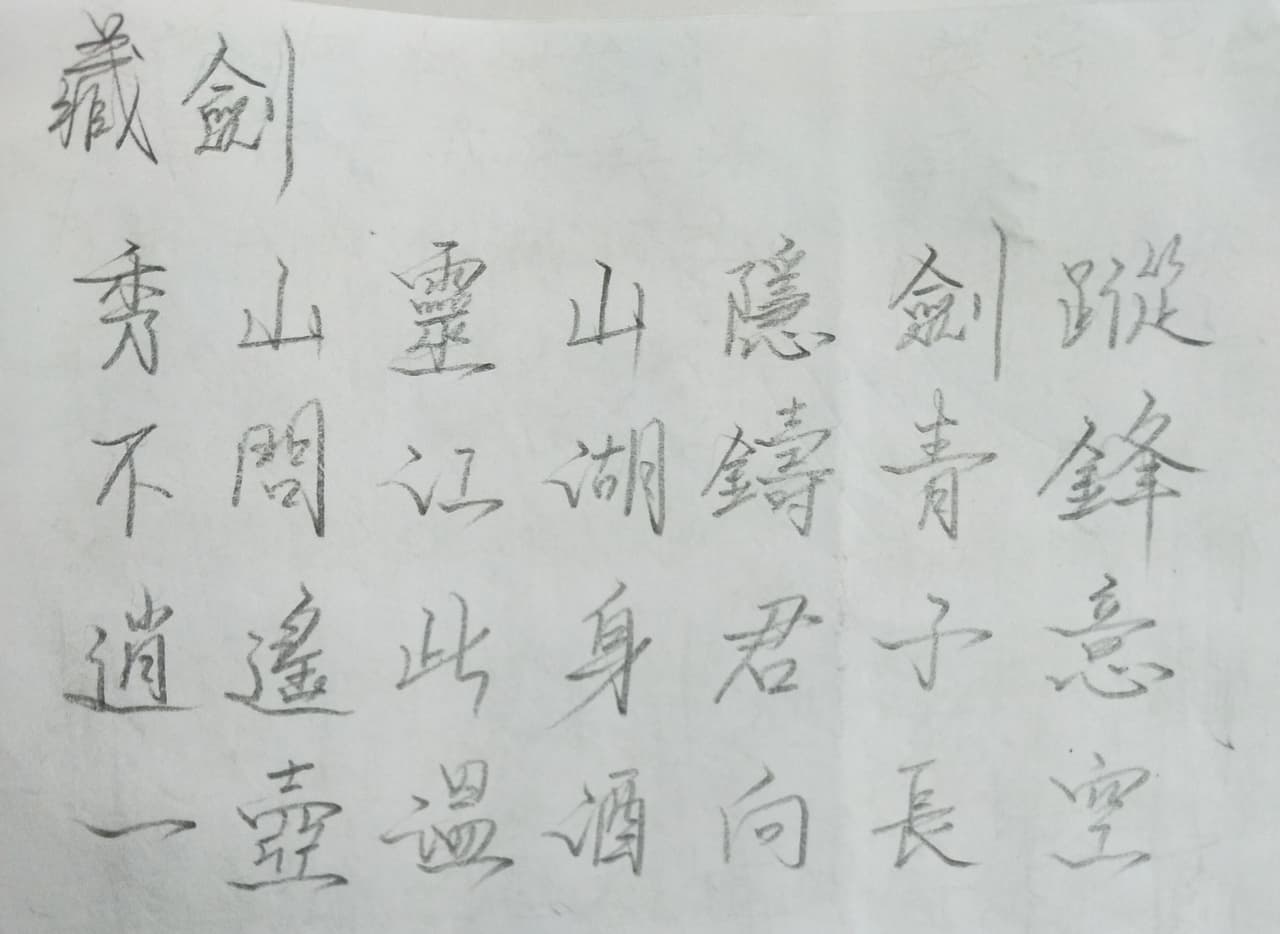 藏劍
秀山靈山隱劍蹤
不問江湖鑄青鋒
逍遙此身君子意
一壺溫酒向長空